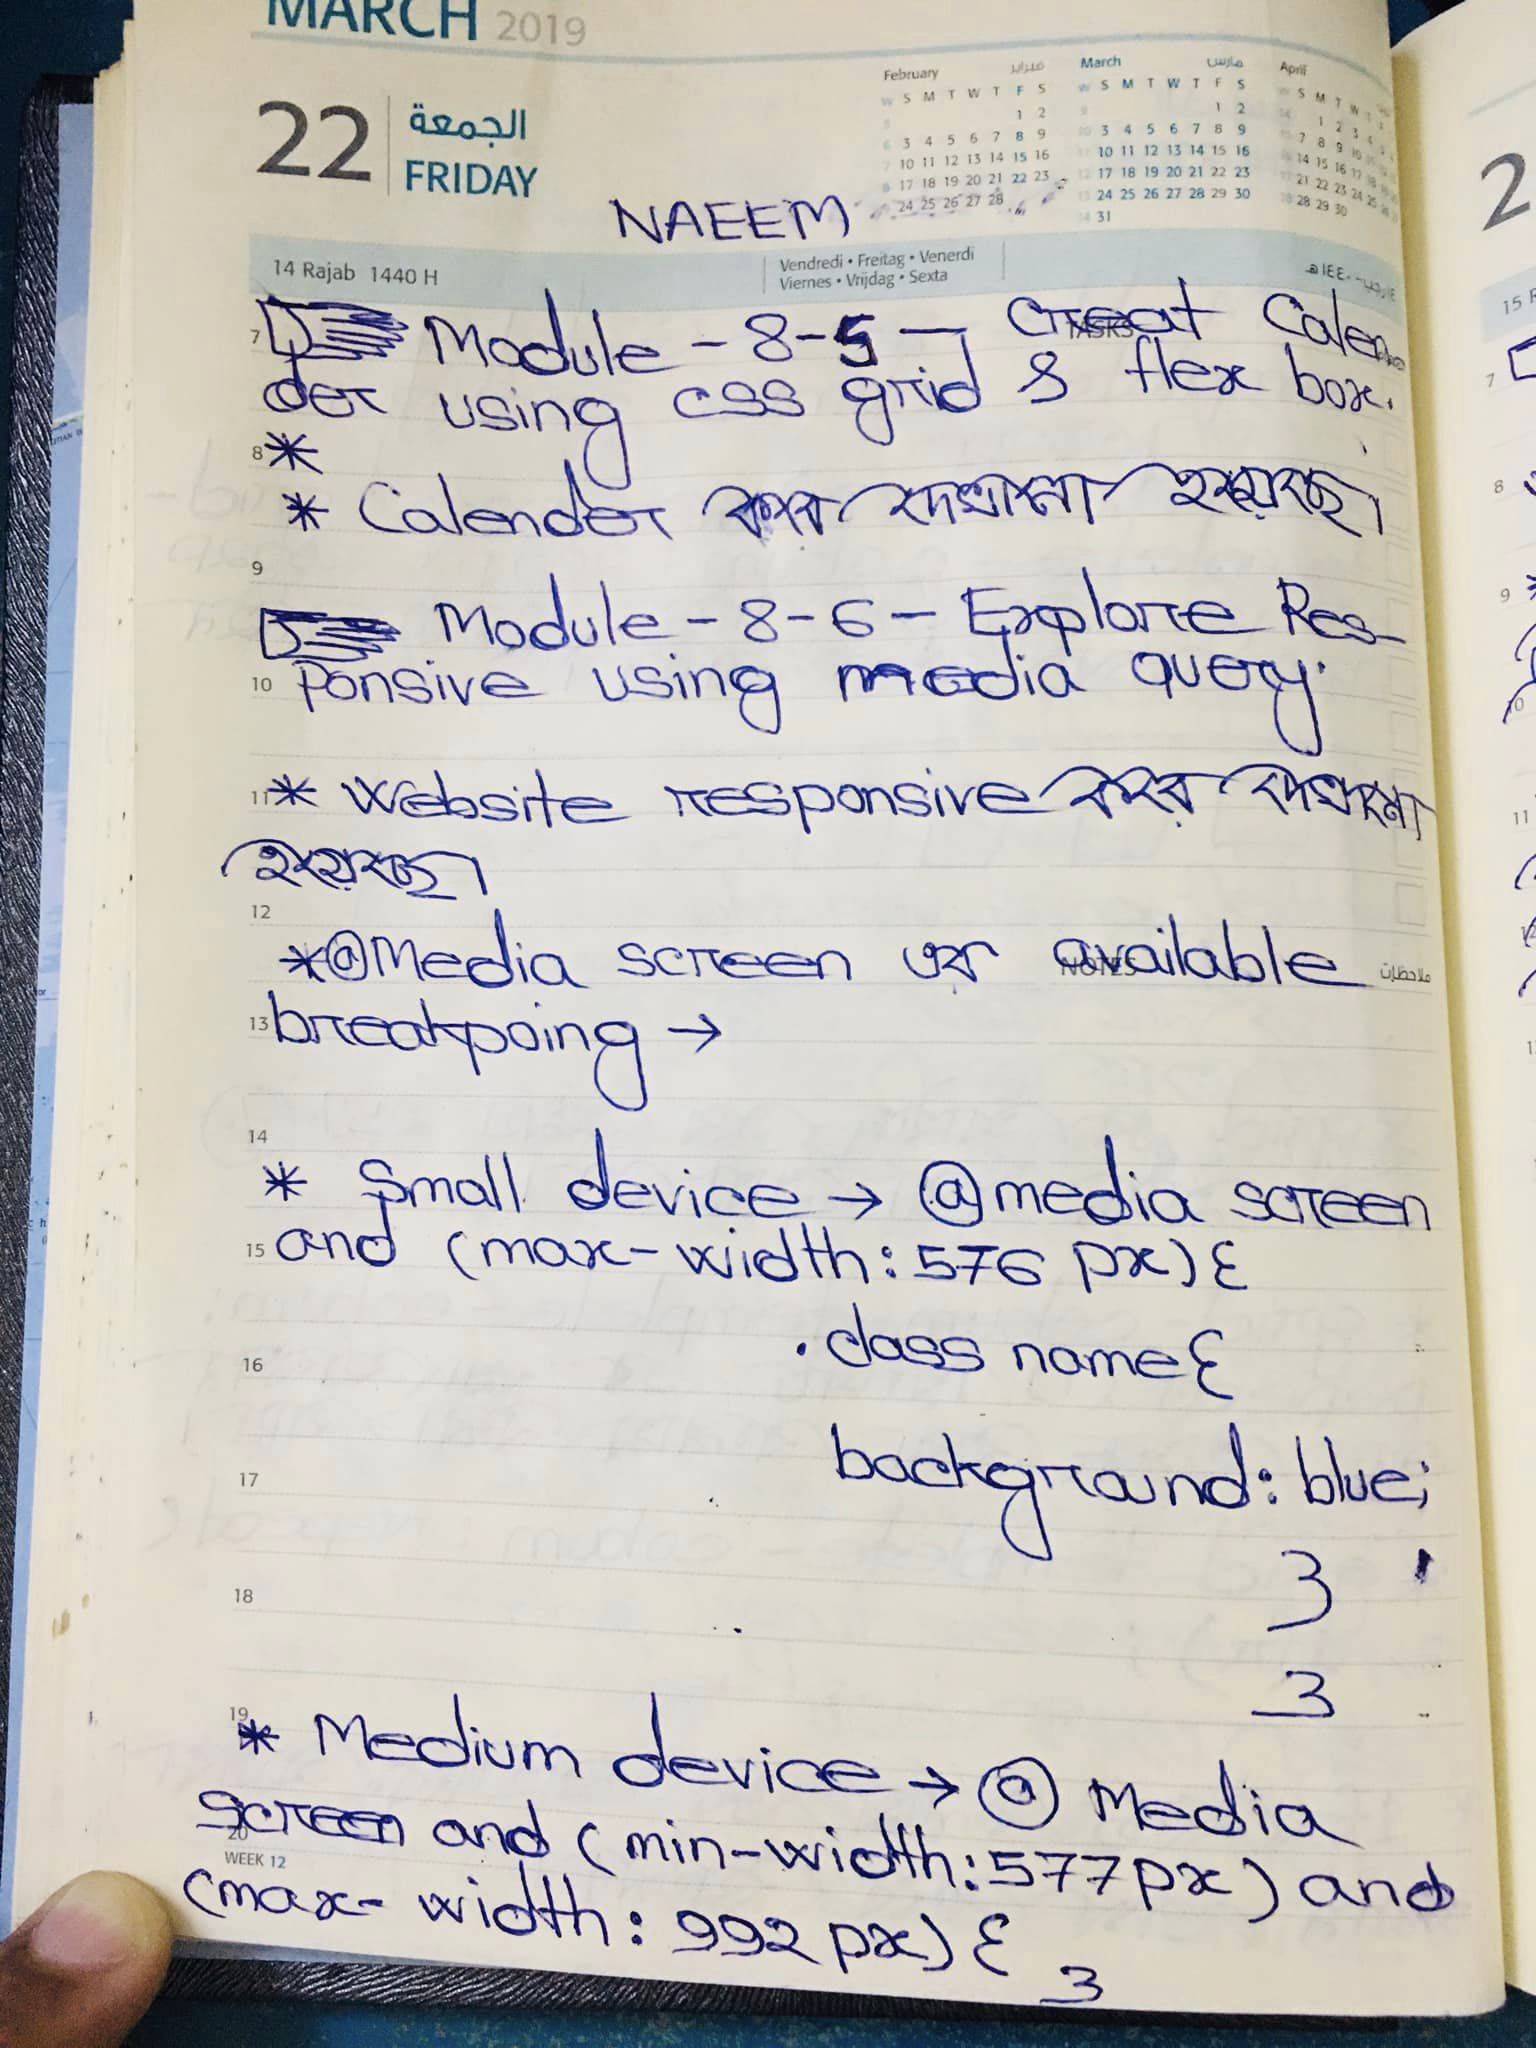 MARCH 2019
22 الجمعة
FRIDAY
February فبراير
W S M T W T F S
5 1 2
6 3 4 5 6 7 8 9
7 10 11 12 13 14 15 16
8 17 18 19 20 21 22 23
24 25 26 27 28
March مارس
W S M T W T F S
9 1 2
10 3 4 5 6 7 8 9
11 10 11 12 13 14 15 16
12 17 18 19 20 21 22 23
13 24 25 26 27 28 29 30
14 31
April
W S M T W T
14 1 2 3 4
7 8 9 10
14 15 16 17 18
21 22 23 24 25
28 29 30
NAEEM
14 Rajab 1440 H
Vendredi • Freitag • Venerdi
Viernes • Vrijdag • Sexta
١٤ رجب ١٤٤٠ هـ
7 Module - 8-5 — Creat Calen
TASKS
der using css grid & flex box.
8 *
* Calender করে দেখানো হয়েছে।
9
Module - 8 - 6 - Explore Res-
10 ponsive using media query.
11 * Website responsive করে দেখানো
হয়েছে।
12
*@Media screen এর available
NOTES ملاحظات
13 breakpoing →
14
* Small device → @media screen
15 and (max-width: 576 px) {
16 . class name {
17 background: blue;
}
18
}
19
* Medium device → @ Media
20 screen and (min-width: 577px) and
WEEK 12
(max- width: 992 px) {
}
2
15 R
7
8
9
10
11
12